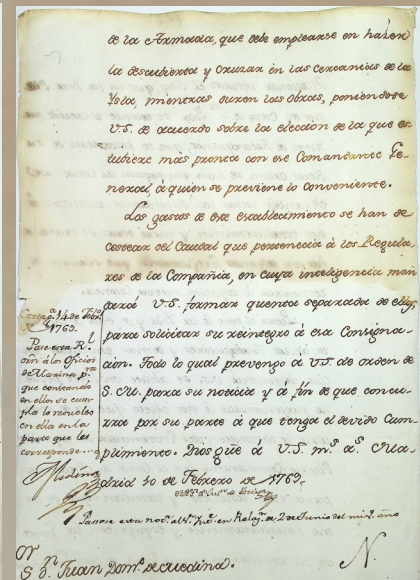 de la Armada, que debe emplearse en hazer
la descubierta y cruzar en las cercanias de la
Ysla, mientras duren las obras, poniendose
V.S. de acuerdo sobre la eleccion de la que es-
tubiere mas pronta con ese Comandante Ge-
neral, à quien se previene lo conveniente.
Los gastos de este establecimiento se han de
costear del Caudal que pertenecia à los Regula-
res de la Compañia, en cuya inteligencia man
dará V.S. formar quenta separada de ellos,
para solicitar su reintegro à esa Consigna-
cion. Todo lo qual prevengo à V.S. de orden de
S. M. para su noticia y à fin de que concu-
rra por su parte à que tenga el devido cum-
plimiento. Dios gue à V.S. m.s a.s Ma-
drid 10 de Febrero de 1769.
Cartag.a 14 de Febr.o
de 1769.
Pase esta Rl
orn à los Oficios
de Marina p.ra
que constando
en ellos se cum-
pla lo
en ella en la
parte que les
corresponde
Molina
Pasose esta not.a al
en
de 2 de Junio del m.o año
S.or D.n Juan Dom.o de Medina.
N.